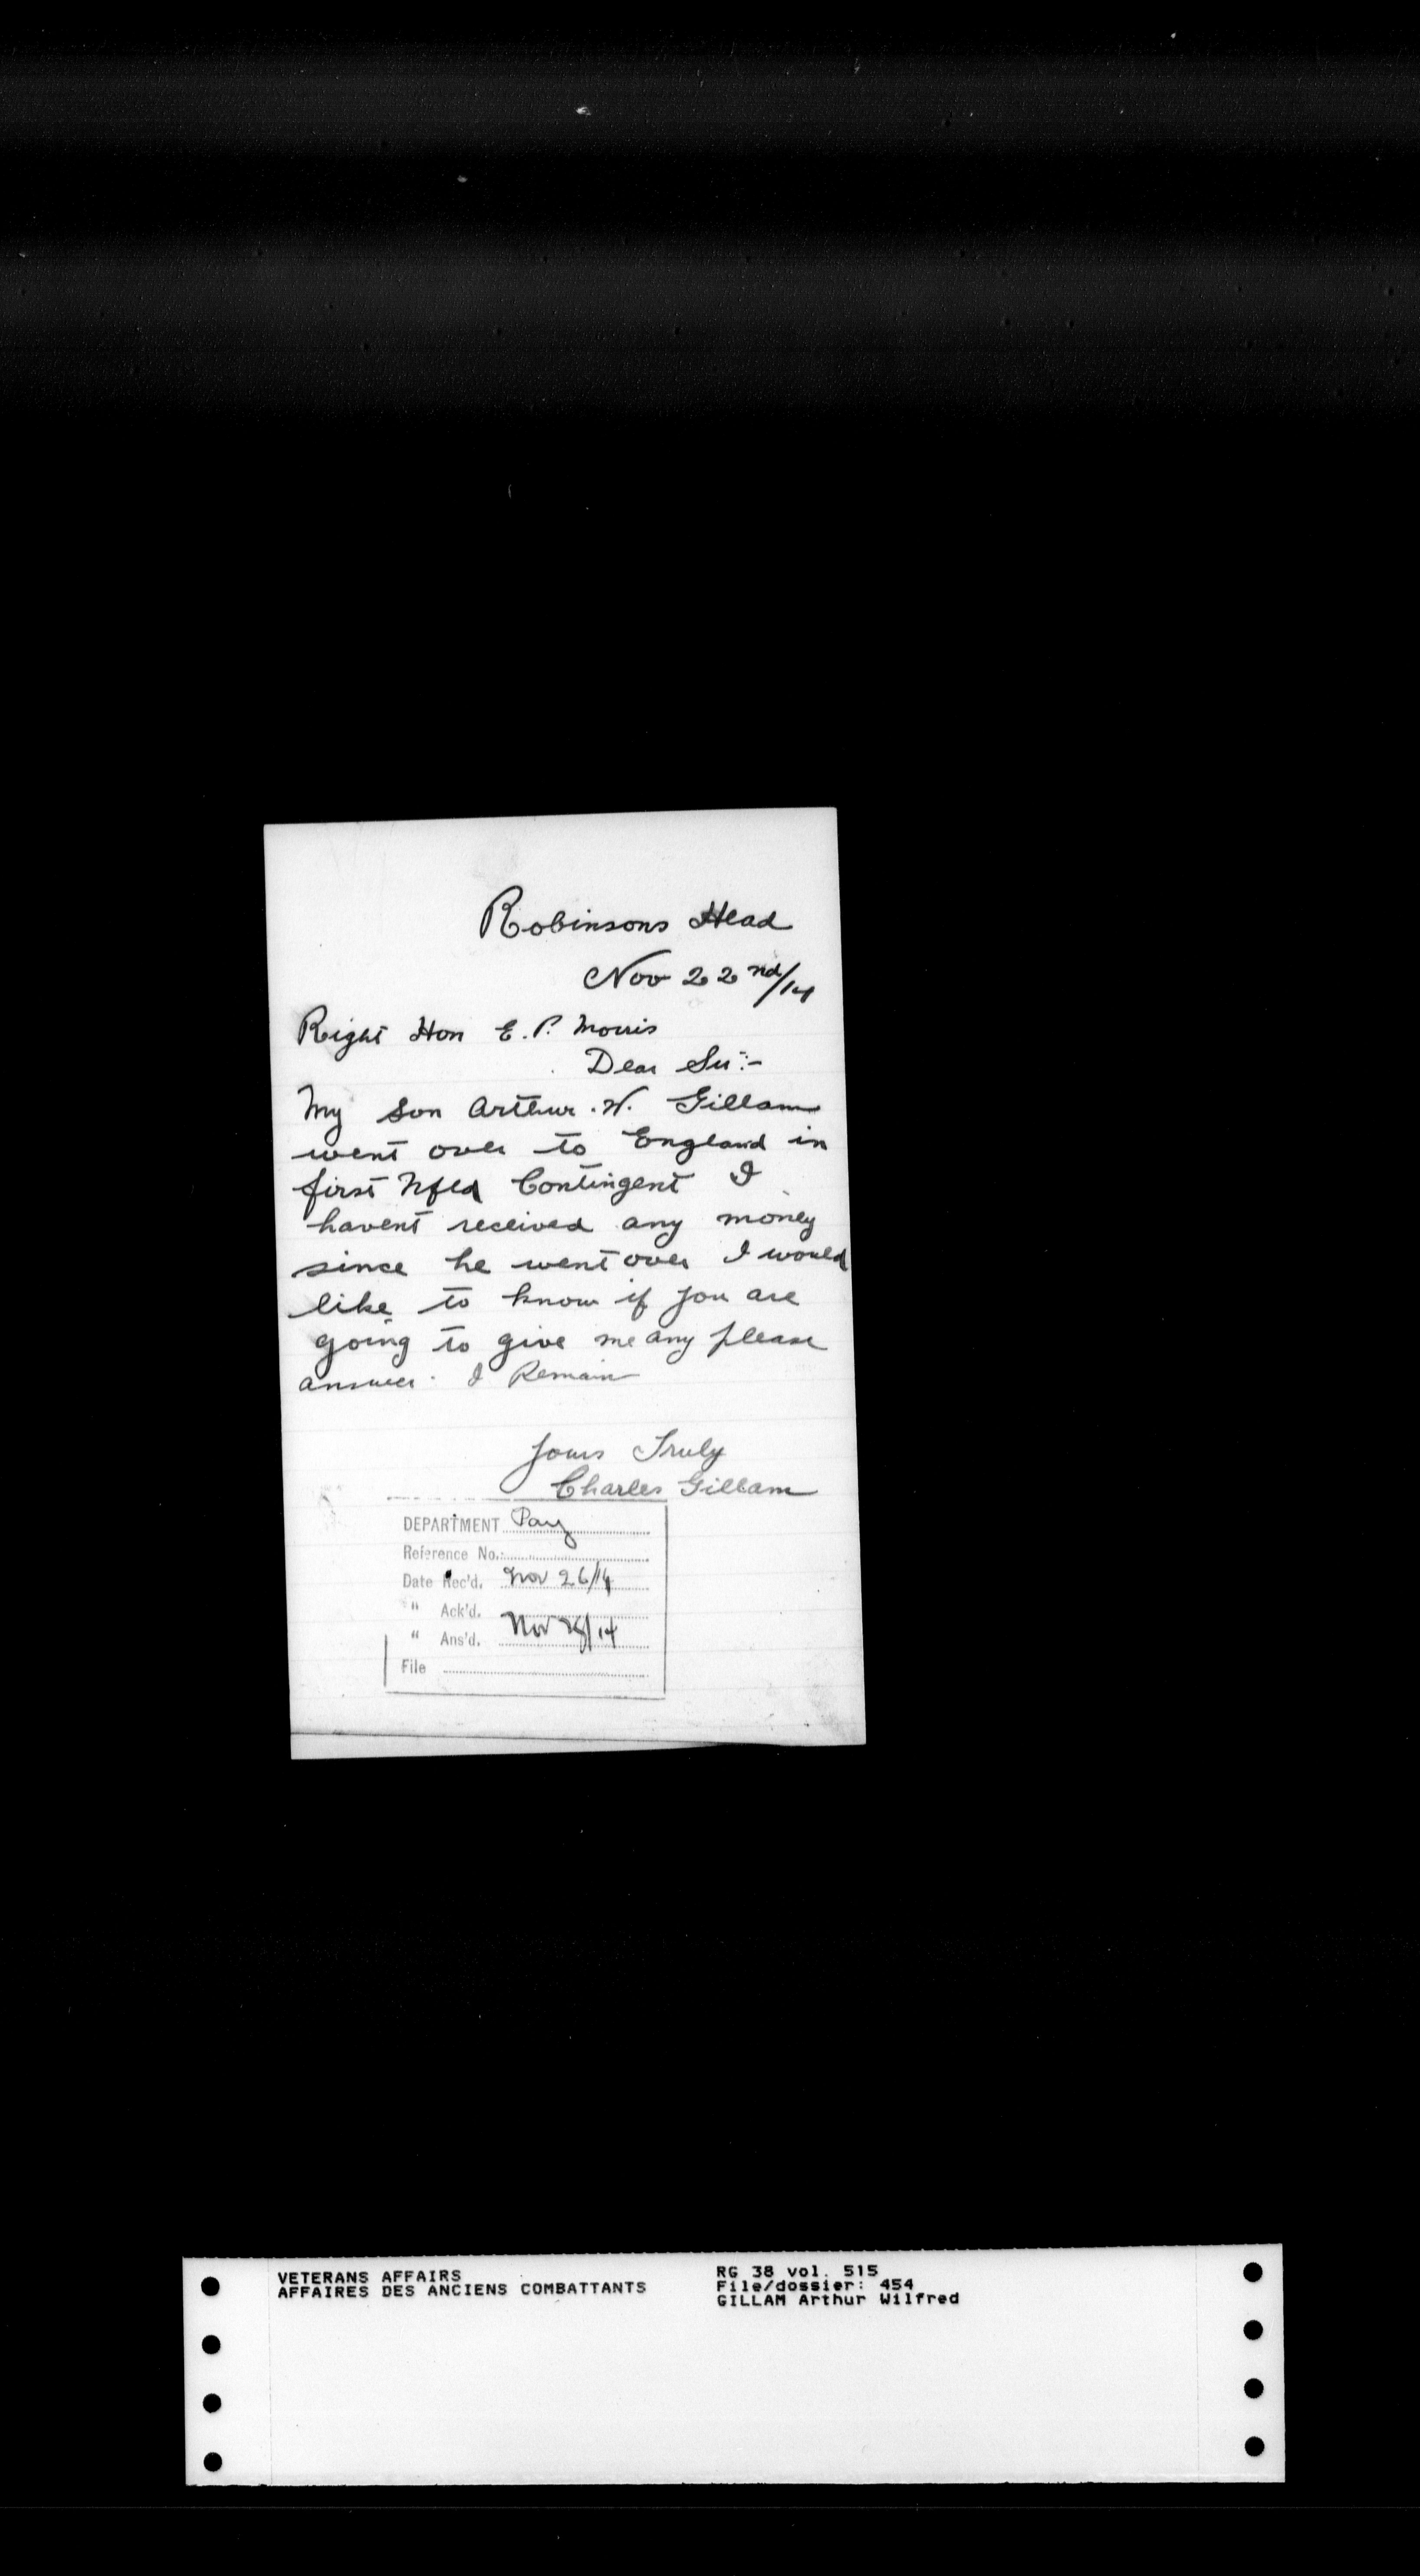 Robinsons Head
Nov 22nd/14
Right Hon E. P. Morris
Dear Sir:-
My Son Arthur. W. Gillam
went over to England in
first Nfld Contingent I
havent received any money
since he went over I would
like to know if you are
going to give me any please
answer. I Remain
Yours Truly
Charles Gillam
DEPARTMENT Pay
Reference No.:
Date Rec'd. Nov 26/14
" Ack'd.
" Ans'd. Nov /14
File
VETERANS AFFAIRS
AFFAIRES DES ANCIENS COMBATTANTS
RG 38 vol. 515
File/dossier: 454
GILLAM Arthur Wilfred